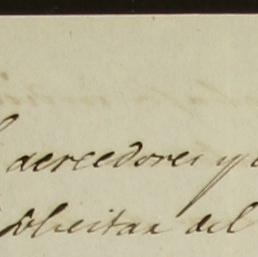 acreedores y
solicitan del